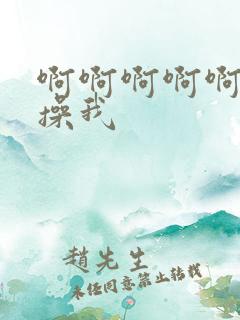 啊啊啊啊啊
操我
趙先生
未经同意禁止转载